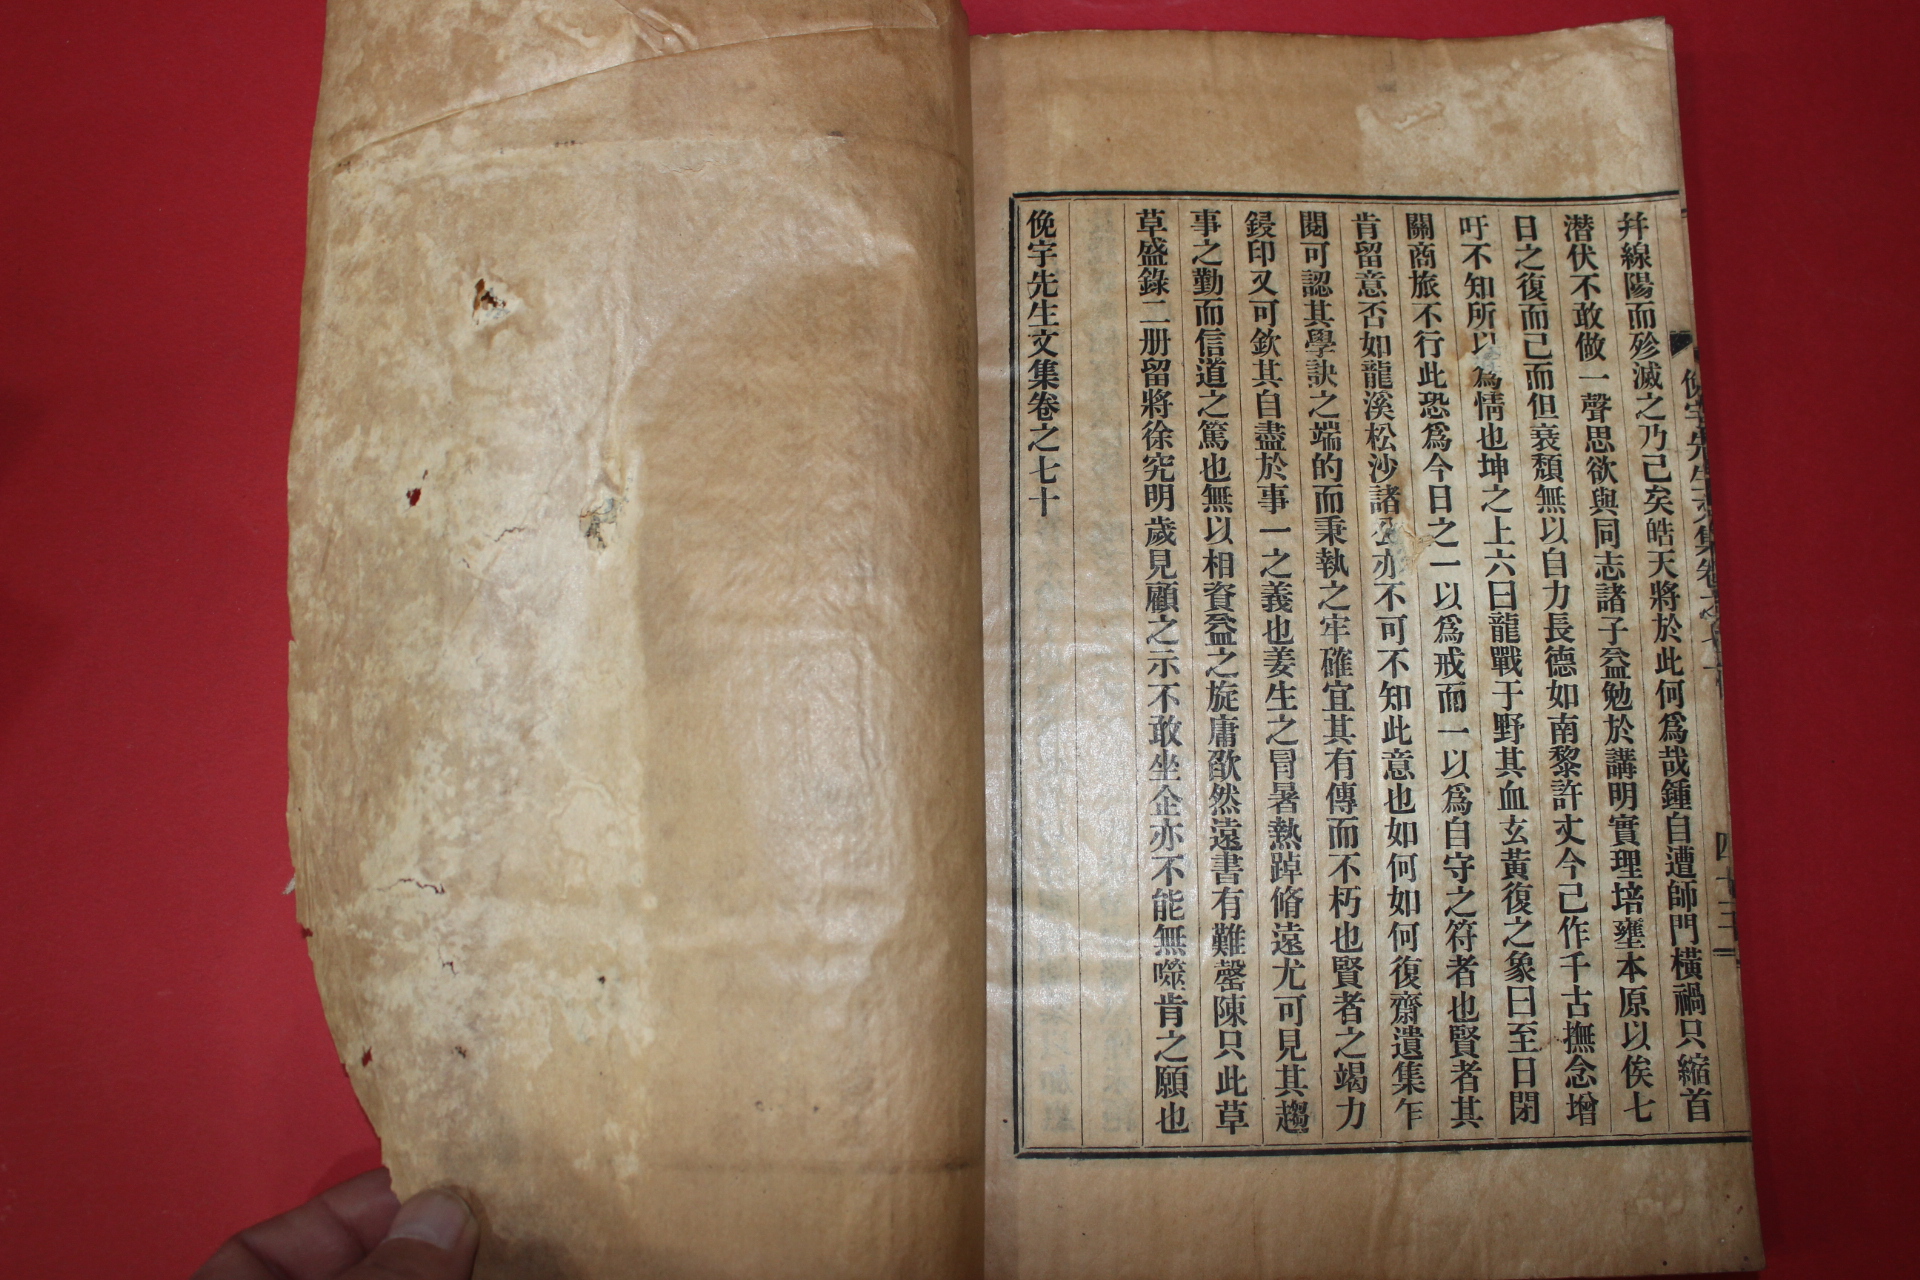 俛宇先生文集卷之七十
四十三
幷線陽而殄滅之乃已矣皓天將於此何爲哉鍾自遭師門橫禍只縮首
潛伏不敢做一聲思欲與同志諸子益勉於講明實理培壅本原以俟七
日之復而已而但衰頹無以自力長德如南黎許丈今已作千古撫念增
吁不知所以爲情也坤之上六曰龍戰于野其血玄黃復之象曰至日閉
關商旅不行此恐爲今日之一以爲戒而一以爲自守之符者也賢者其
肯留意否如龍溪松沙諸公亦不可不知此意也如何如何復齋遺集乍
閱可認其學訣之端的而秉執之牢確宜其有傳而不朽也賢者之竭力
鋟印又可欽其自盡於事一之義也姜生之冒暑熱踔脩遠尤可見其趨
事之勤而信道之篤也無以相資益之旋庸歉然遠書有難罄陳只此草
草盛錄二册留將徐究明歲見顧之示不敢坐企亦不能無噬肯之願也
俛宇先生文集卷之七十